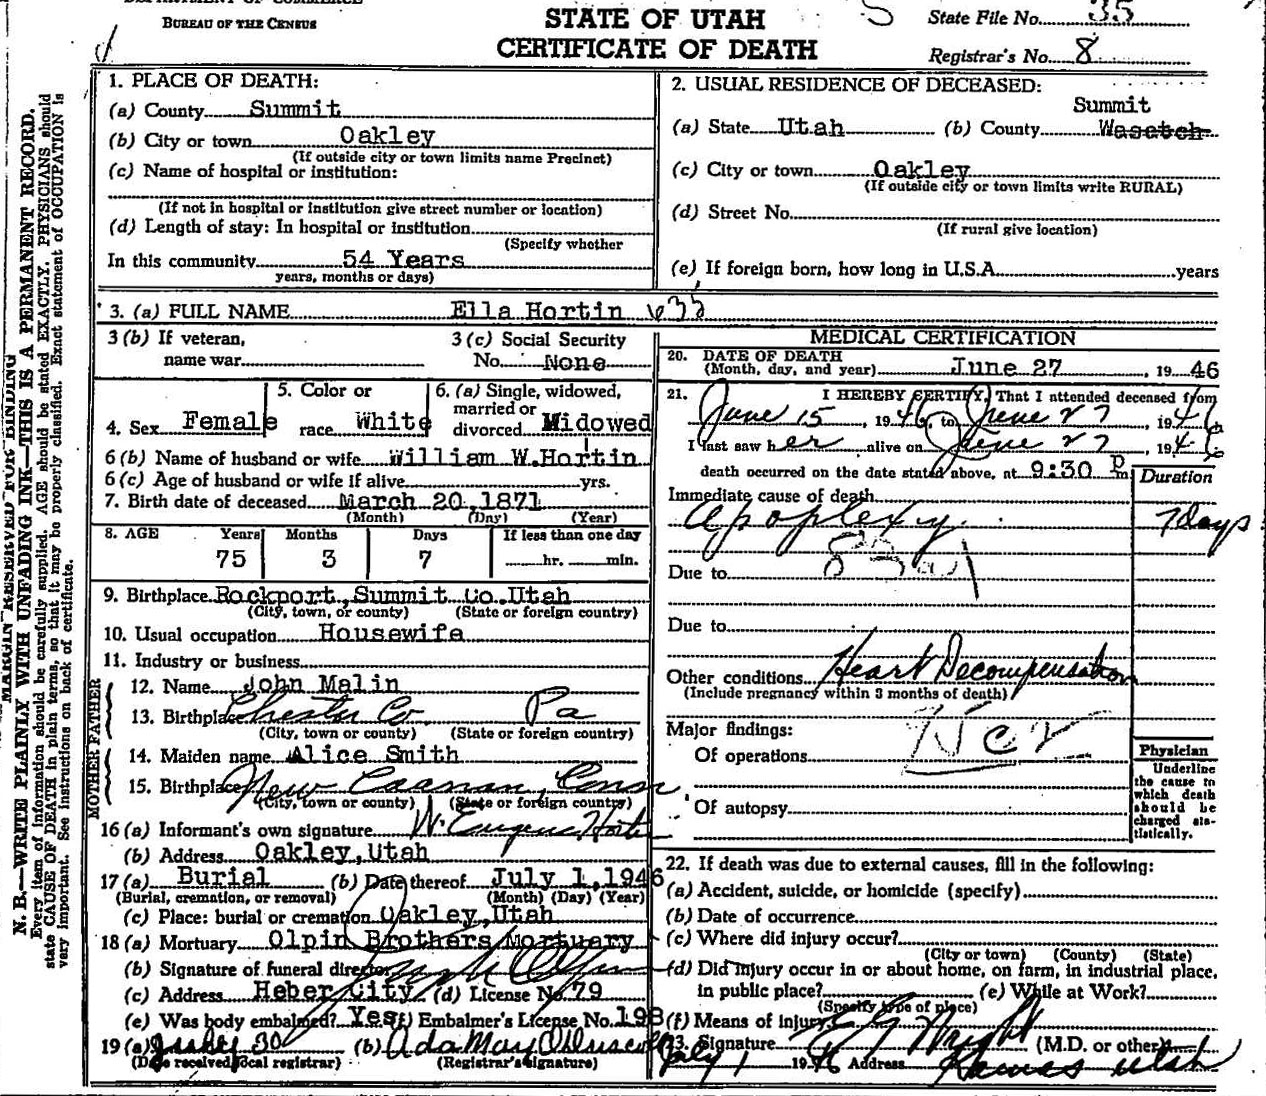 BUREAU OF THE CENSUS
STATE OF UTAH
CERTIFICATE OF DEATH
State File No. 35
Registrar's No. 8
MARGIN RESERVED FOR BINDING
N. B.—WRITE PLAINLY WITH UNFADING INK—THIS IS A PERMANENT RECORD.
Every item of information should be carefully supplied. AGE should be stated EXACTLY. PHYSICIANS should
state CAUSE OF DEATH in plain terms, so that it may be properly classified. Exact statement of OCCUPATION is
very important. See instructions on back of certificate.
1. PLACE OF DEATH:
(a) County Summit
(b) City or town Oakley
(If outside city or town limits name Precinct)
(c) Name of hospital or institution:
(If not in hospital or institution give street number or location)
(d) Length of stay: In hospital or institution
(Specify whether
In this community 54 Years
years, months or days)
2. USUAL RESIDENCE OF DECEASED:
Summit
(a) State Utah (b) County Wasatch
(c) City or town Oakley
(If outside city or town limits write RURAL)
(d) Street No.
(If rural give location)
(e) If foreign born, how long in U.S.A. years
3. (a) FULL NAME Ella Hortin
3 (b) If veteran, 3 (c) Social Security
name war No. None
4. Sex Female 5. Color or race White 6. (a) Single, widowed, married or divorced Widowed
6 (b) Name of husband or wife William W. Hortin
6 (c) Age of husband or wife if alive yrs.
7. Birth date of deceased March 20, 1871
(Month) (Day) (Year)
8. AGE Years Months Days If less than one day
75 3 7 hr. min.
9. Birthplace Rockport, Summit Co. Utah
(City, town, or county) (State or foreign country)
10. Usual occupation Housewife
11. Industry or business
FATHER
12. Name John Malin
13. Birthplace Chester Co. Pa
(City, town or county) (State or foreign country)
MOTHER
14. Maiden name Alice Smith
15. Birthplace New Caanan, Conn
(City, town or county) (State or foreign country)
16 (a) Informant's own signature W. Eugene Hortin
(b) Address Oakley, Utah
17 (a) Burial (b) Date thereof July 1, 1946
(Burial, cremation, or removal) (Month) (Day) (Year)
(c) Place: burial or cremation Oakley, Utah
18 (a) Mortuary Olpin Brothers Mortuary
(b) Signature of funeral director
(c) Address Heber City (d) License No. 79
(e) Was body embalmed? Yes (f) Embalmer's License No. 198
19 (a) 30 (b) Ada May
(Date received local registrar) (Registrar's signature)
MEDICAL CERTIFICATION
20. DATE OF DEATH
(Month, day, and year) June 27, 1946
21. I HEREBY CERTIFY, That I attended deceased from
June 15, 1946, to June 27, 1946
I last saw her alive on June 27, 1946
death occurred on the date stated above, at 9:30 p m
Duration
Immediate cause of death
Apoplexy 7 days
Due to
Due to
Other conditions Heart Decompensation
(Include pregnancy within 3 months of death)
Major findings:
Of operations
Of autopsy
Physician
Underline
the cause to
which death
should be
charged sta-
tistically.
22. If death was due to external causes, fill in the following:
(a) Accident, suicide, or homicide (specify)
(b) Date of occurrence
(c) Where did injury occur?
(City or town) (County) (State)
(d) Did injury occur in or about home, on farm, in industrial place,
in public place? (e) While at Work?
(Specify type of place)
(f) Means of injury
23. Signature Wright (M.D. or other)
July 1 1946 Address Kamas Utah